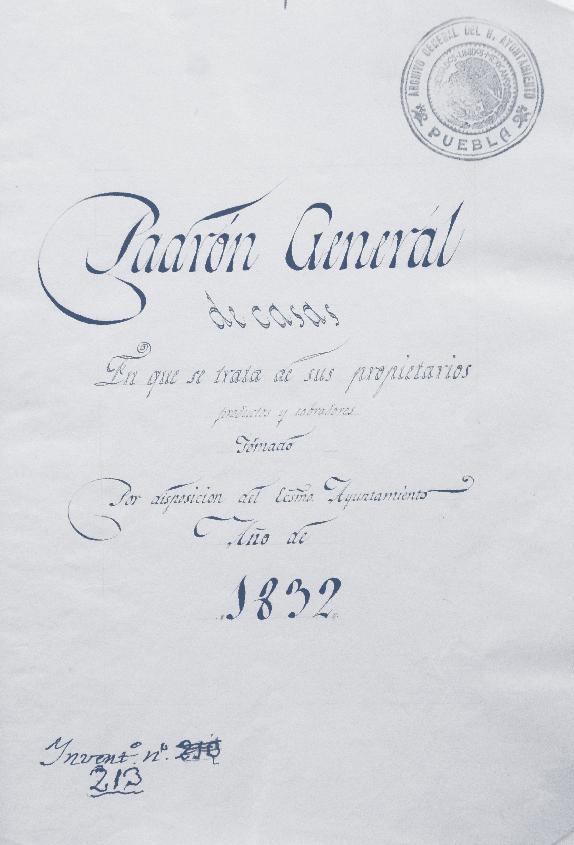 ARCHIVO GENERAL DEL H. AYUNTAMIENTO
ESTADOS UNIDOS MEXICANOS
PUEBLA
Padrón Generál
de casas
En que se trata de sus propietarios
productos y cobradores
Tómado
Por disposicion del Ecsmo. Ayuntamiento
Año de
1832.
Invent.º n.º
213